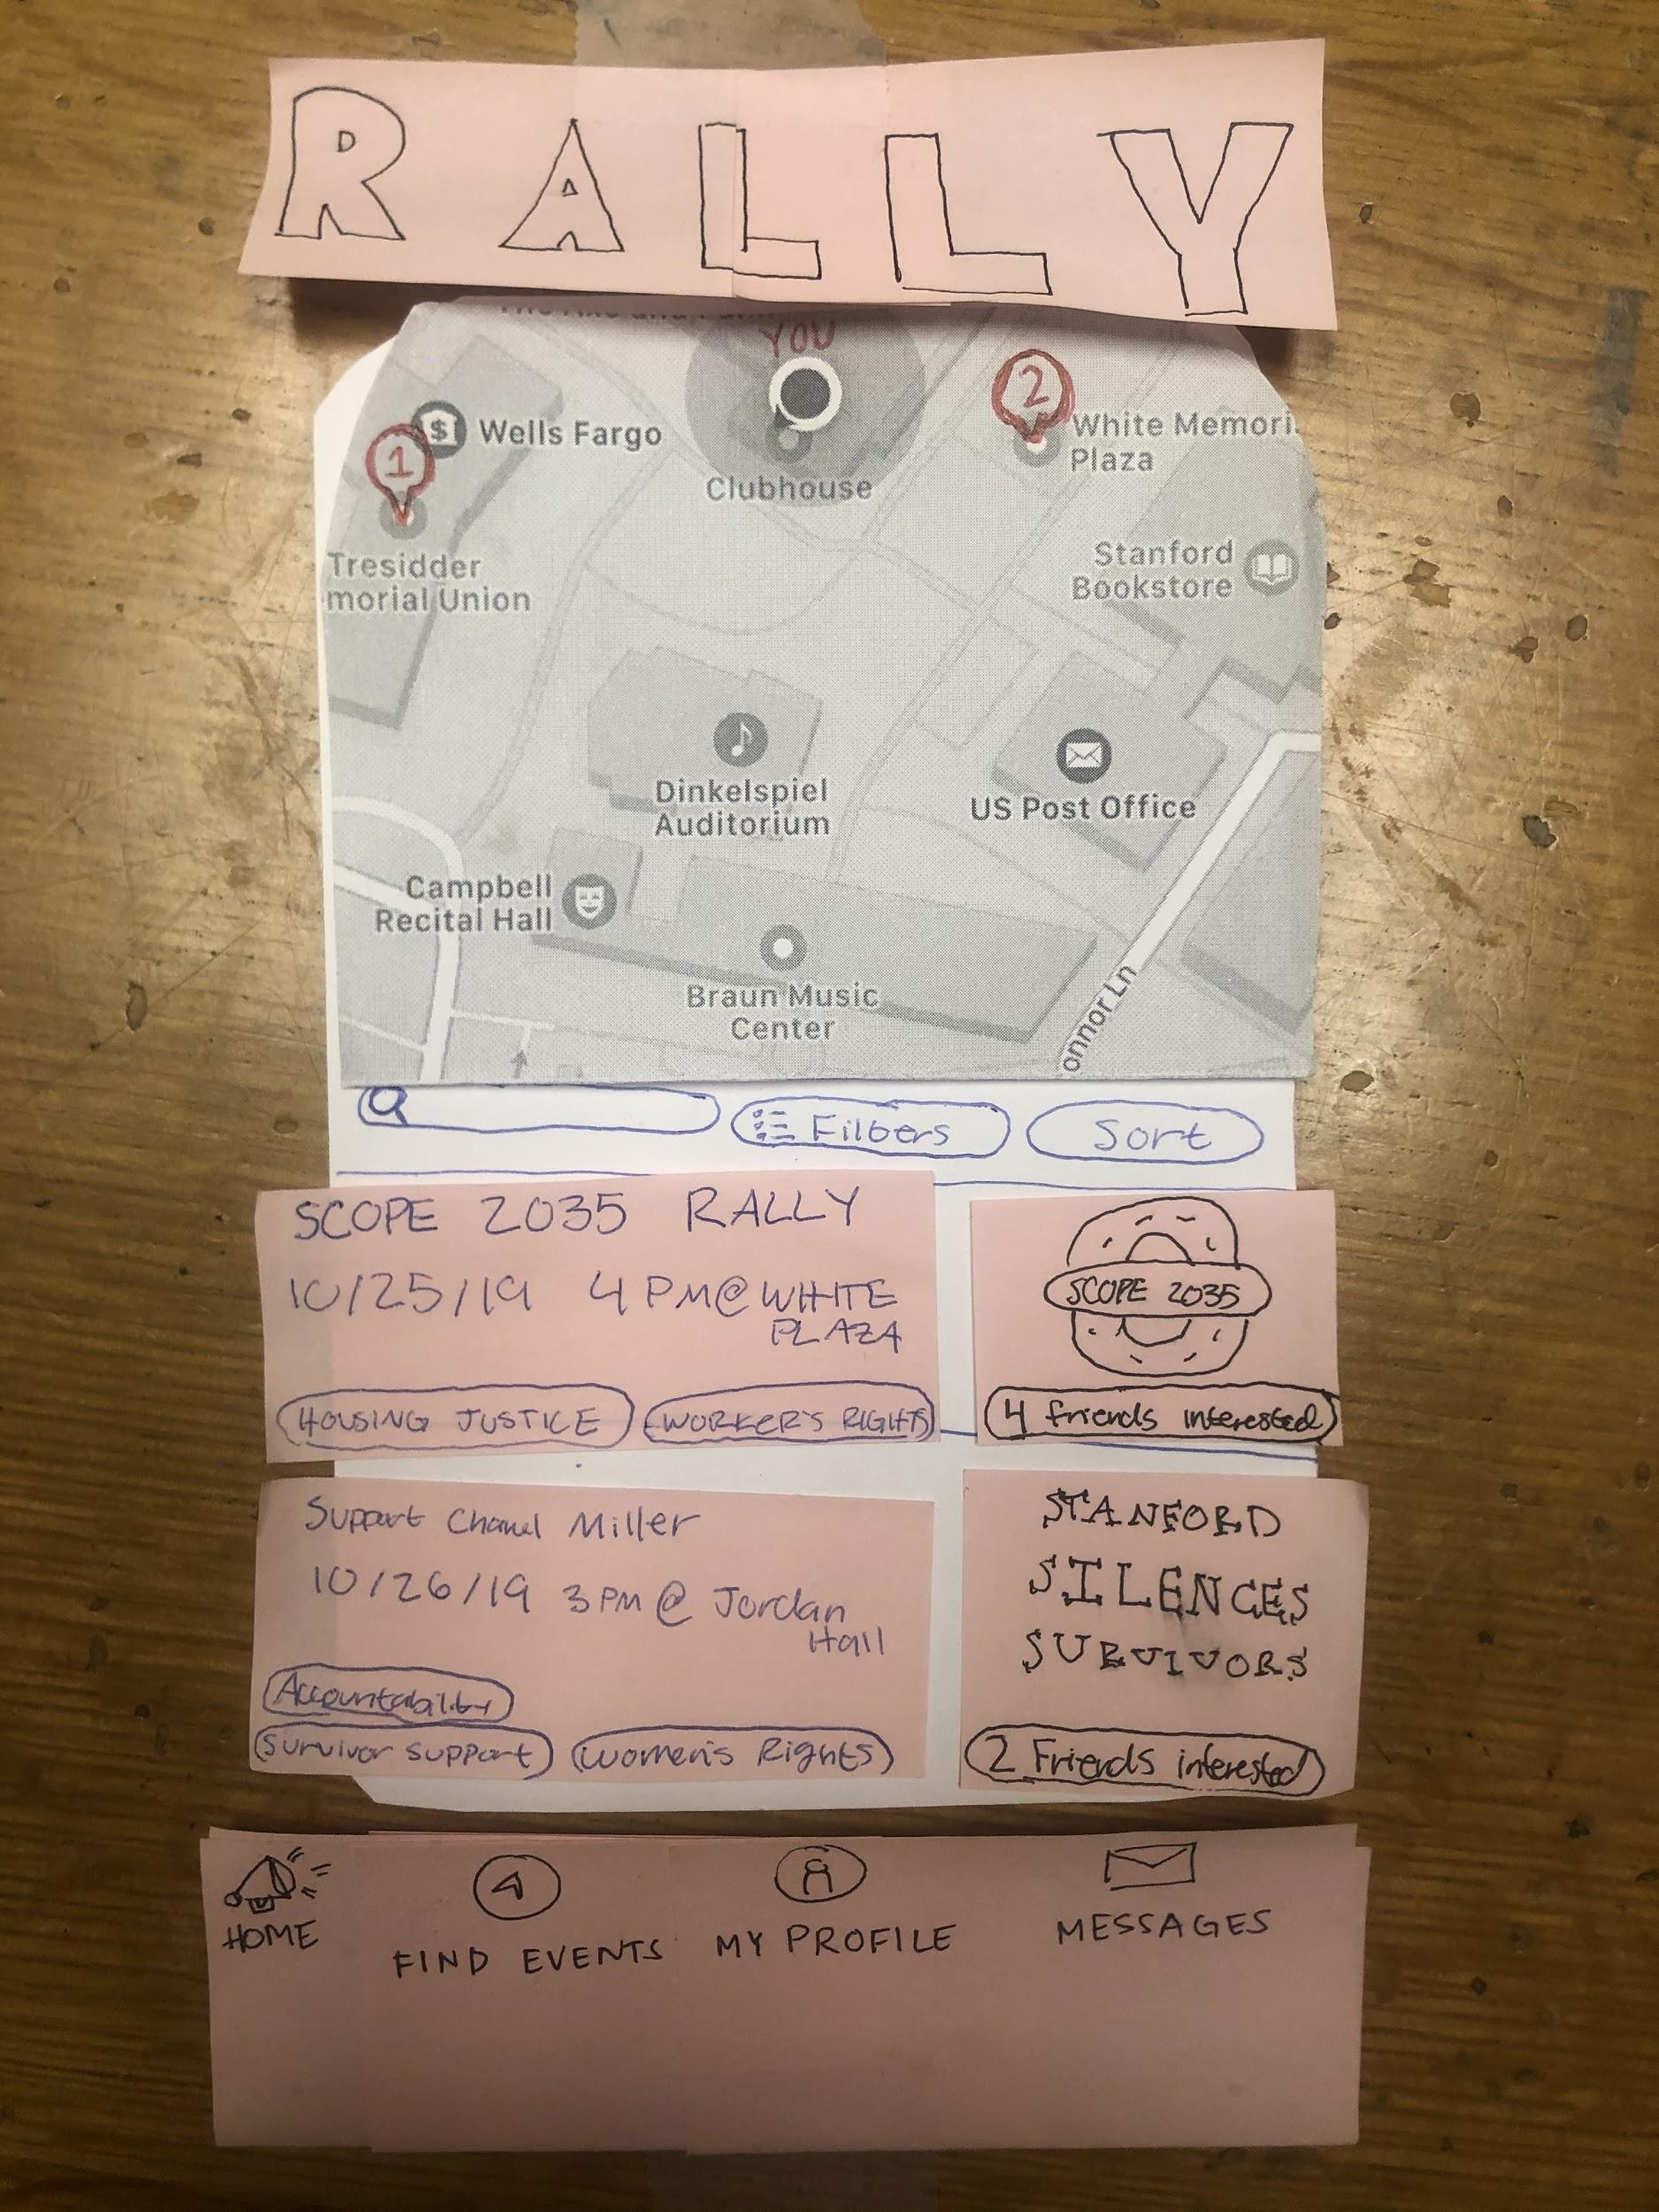 RALLY
YOU
2
Wells Fargo
White Memori
Plaza
1
$
Clubhouse
Tresidder
morial Union
Stanford
Bookstore
Dinkelspiel
Auditorium
US Post Office
Campbell
Recital Hall
Braun Music
Center
onnor Ln
Filters
Sort
SCOPE 2035 RALLY
10/25/19 4 PM @ WHITE
PLAZA
HOUSING JUSTICE
WORKER'S RIGHTS
SCOPE 2035
4 friends interested
Support Chanel Miller
10/26/19 3 PM @ Jordan
Hall
Accountability
Survivor support
Women's Rights
STANFORD
SILENCES
SURVIVORS
2 Friends interested
HOME
FIND EVENTS
MY PROFILE
MESSAGES